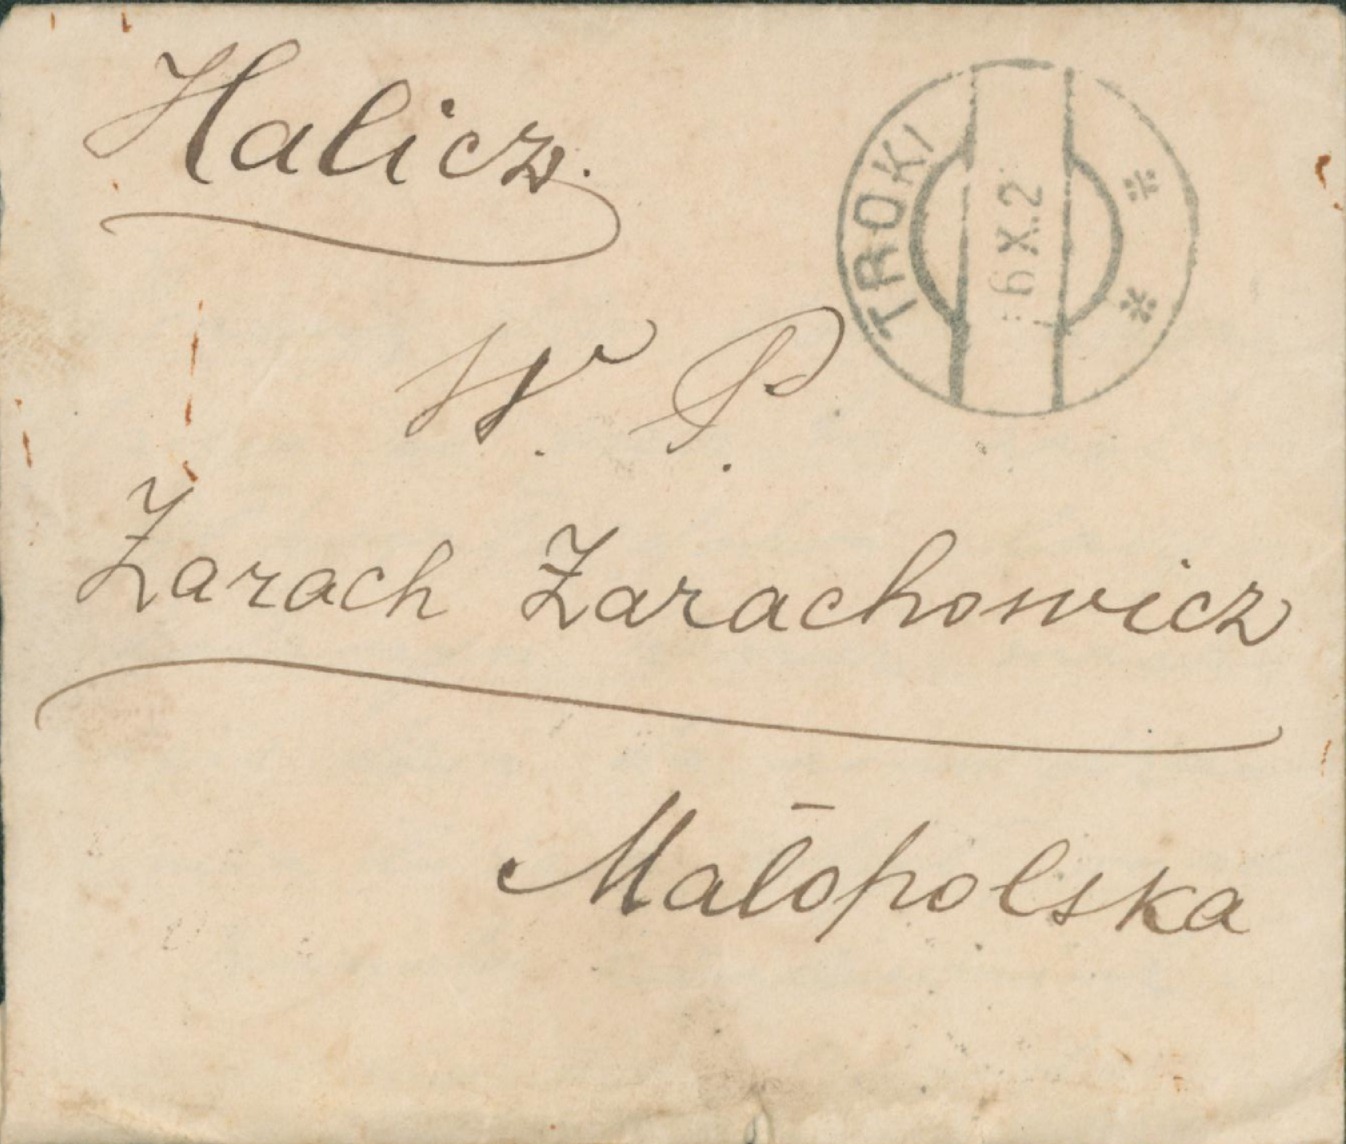 Halicz.
TROKI
6 X. 2
W. P.
Zarach Zarachowicz
Małopolska